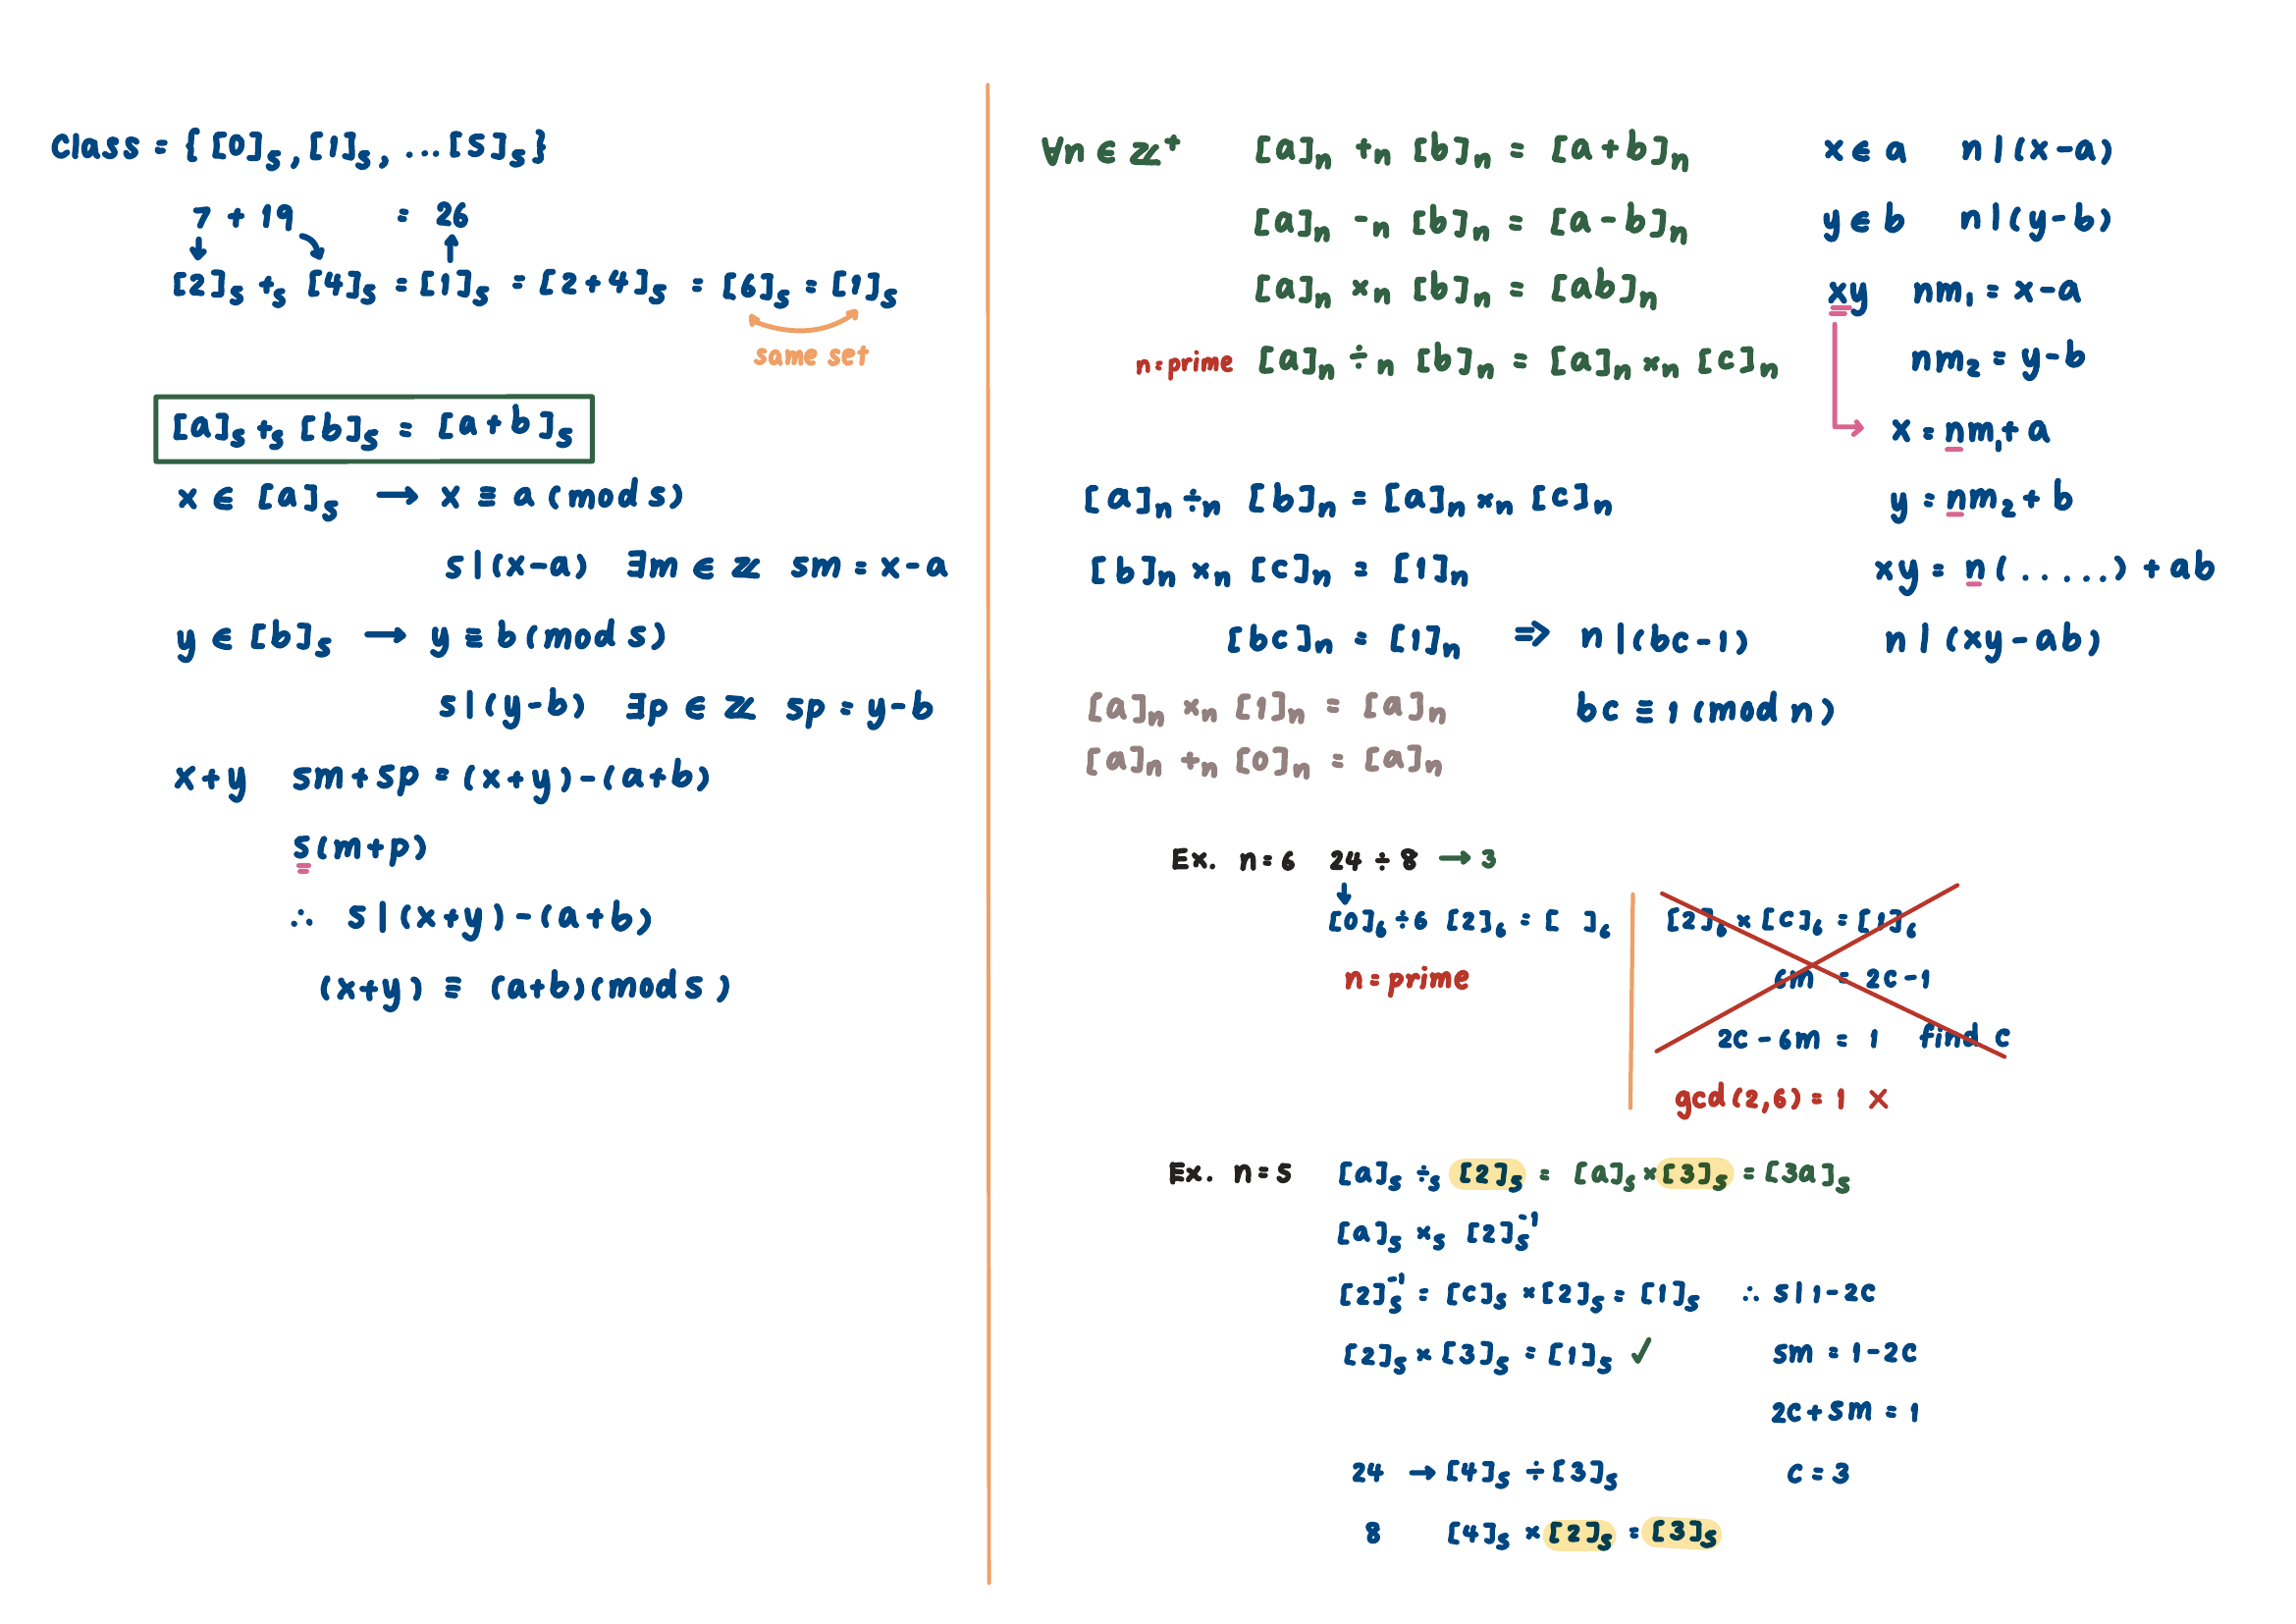 Class = { [0]₅, [1]₅, ...[5]₅}
7 + 19 = 26
↓ ↘ ↑
[2]₅ +₅ [4]₅ = [1]₅ = [2+4]₅ = [6]₅ = [1]₅
same set
[a]₅ +₅ [b]₅ = [a+b]₅
x ∈ [a]₅ → x ≡ a (mod 5)
5|(x-a) ∃m ∈ ℤ 5m = x-a
y ∈ [b]₅ → y ≡ b (mod 5)
5|(y-b) ∃p ∈ ℤ 5p = y-b
x+y 5m+5p = (x+y)-(a+b)
5(m+p)
∴ 5|(x+y)-(a+b)
(x+y) ≡ (a+b)(mod 5)
∀n ∈ ℤ⁺ [a]ₙ +ₙ [b]ₙ = [a+b]ₙ
[a]ₙ -ₙ [b]ₙ = [a-b]ₙ
[a]ₙ ×ₙ [b]ₙ = [ab]ₙ
n=prime [a]ₙ ÷ₙ [b]ₙ = [a]ₙ ×ₙ [c]ₙ
x ∈ a n|(x-a)
y ∈ b n|(y-b)
xy nm₁ = x-a
nm₂ = y-b
→ x = nm₁+a
y = nm₂+b
xy = n(.....)+ab
n|(xy-ab)
[a]ₙ ÷ₙ [b]ₙ = [a]ₙ ×ₙ [c]ₙ
[b]ₙ ×ₙ [c]ₙ = [1]ₙ
[bc]ₙ = [1]ₙ ⇒ n|(bc-1)
[a]ₙ ×ₙ [1]ₙ = [a]ₙ bc ≡ 1 (mod n)
[a]ₙ +ₙ [0]ₙ = [a]ₙ
Ex. n=6 24÷8 → 3
↓
[0]₆ ÷6 [2]₆ = [ ]₆
n=prime
[2]₆ × [c]₆ = [1]₆
6m = 2c-1
2c-6m = 1 find c
gcd(2,6)=1 ×
Ex. n=5 [a]₅ ÷₅ [2]₅ = [a]₅×[3]₅ = [3a]₅
[a]₅ ×₅ [2]₅⁻¹
[2]₅⁻¹ = [c]₅ ×[2]₅ = [1]₅ ∴ 5|1-2c
[2]₅ × [3]₅ = [1]₅ ✓ 5m = 1-2c
2c+5m = 1
24 → [4]₅ ÷ [3]₅ c = 3
8 [4]₅ × [2]₅ = [3]₅